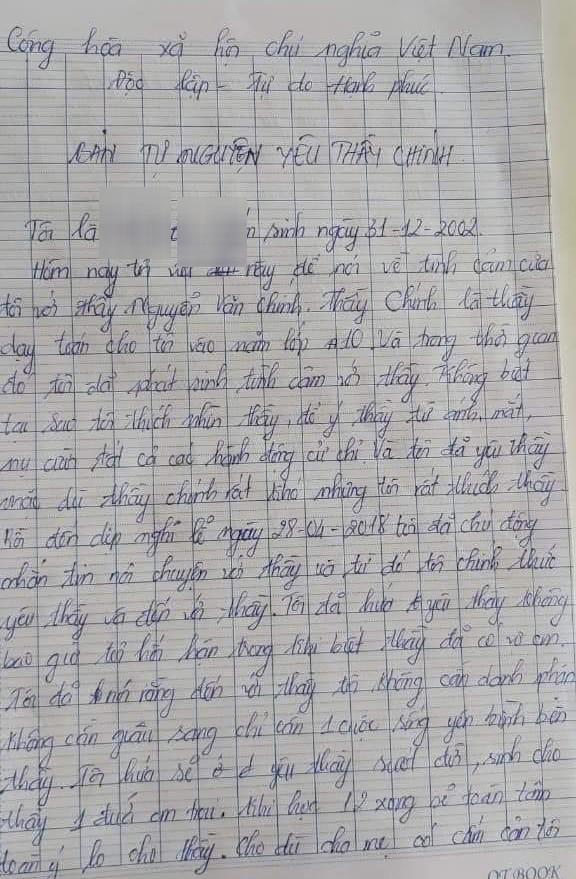 Cộng hòa xã hội chủ nghĩa Việt Nam.
Độc lập - Tự do Hạnh phúc.
BẢN TỰ NGUYỆN YÊU THẦY CHÍNH.
Tôi là sinh ngày 31-12-2002.
Hôm nay tôi này để nói về tình cảm của
tôi với thầy Nguyễn Văn Chính. Thầy Chính là thầy
dạy toán cho tôi vào năm lớp A10. Và trong thời gian
đó tôi đã phát sinh tình cảm với thầy. Không biết
tại sao tôi thích nhìn thầy, để ý thầy từ ánh mắt,
nụ cười tất cả các hành động cử chỉ. Và tôi đã yêu thầy
mặc dù thầy chính rất khó nhưng tôi rất thích thầy.
đến dịp nghỉ lễ ngày 28-04-2018 tôi đã chủ động
nhắn tin nói chuyện với thầy và từ đó tôi chính thức
yêu thầy và đến với thầy. Tôi đã hứa yêu thầy không
bao giờ tôi hối hận trong khi biết thầy đã có vợ con.
Tôi đã rằng đến với thầy tôi không cần danh phận
không cần giàu sang chỉ cần 1 cuộc sống yên bình bên
thầy. Tôi hứa sẽ ở yêu thầy suốt đời, sinh cho
thầy 1 đứa con trai. Khi học 12 xong sẽ toàn tâm
toàn ý lo cho thầy. Cho dù cha mẹ có cấm cản tôi
OT BOOK